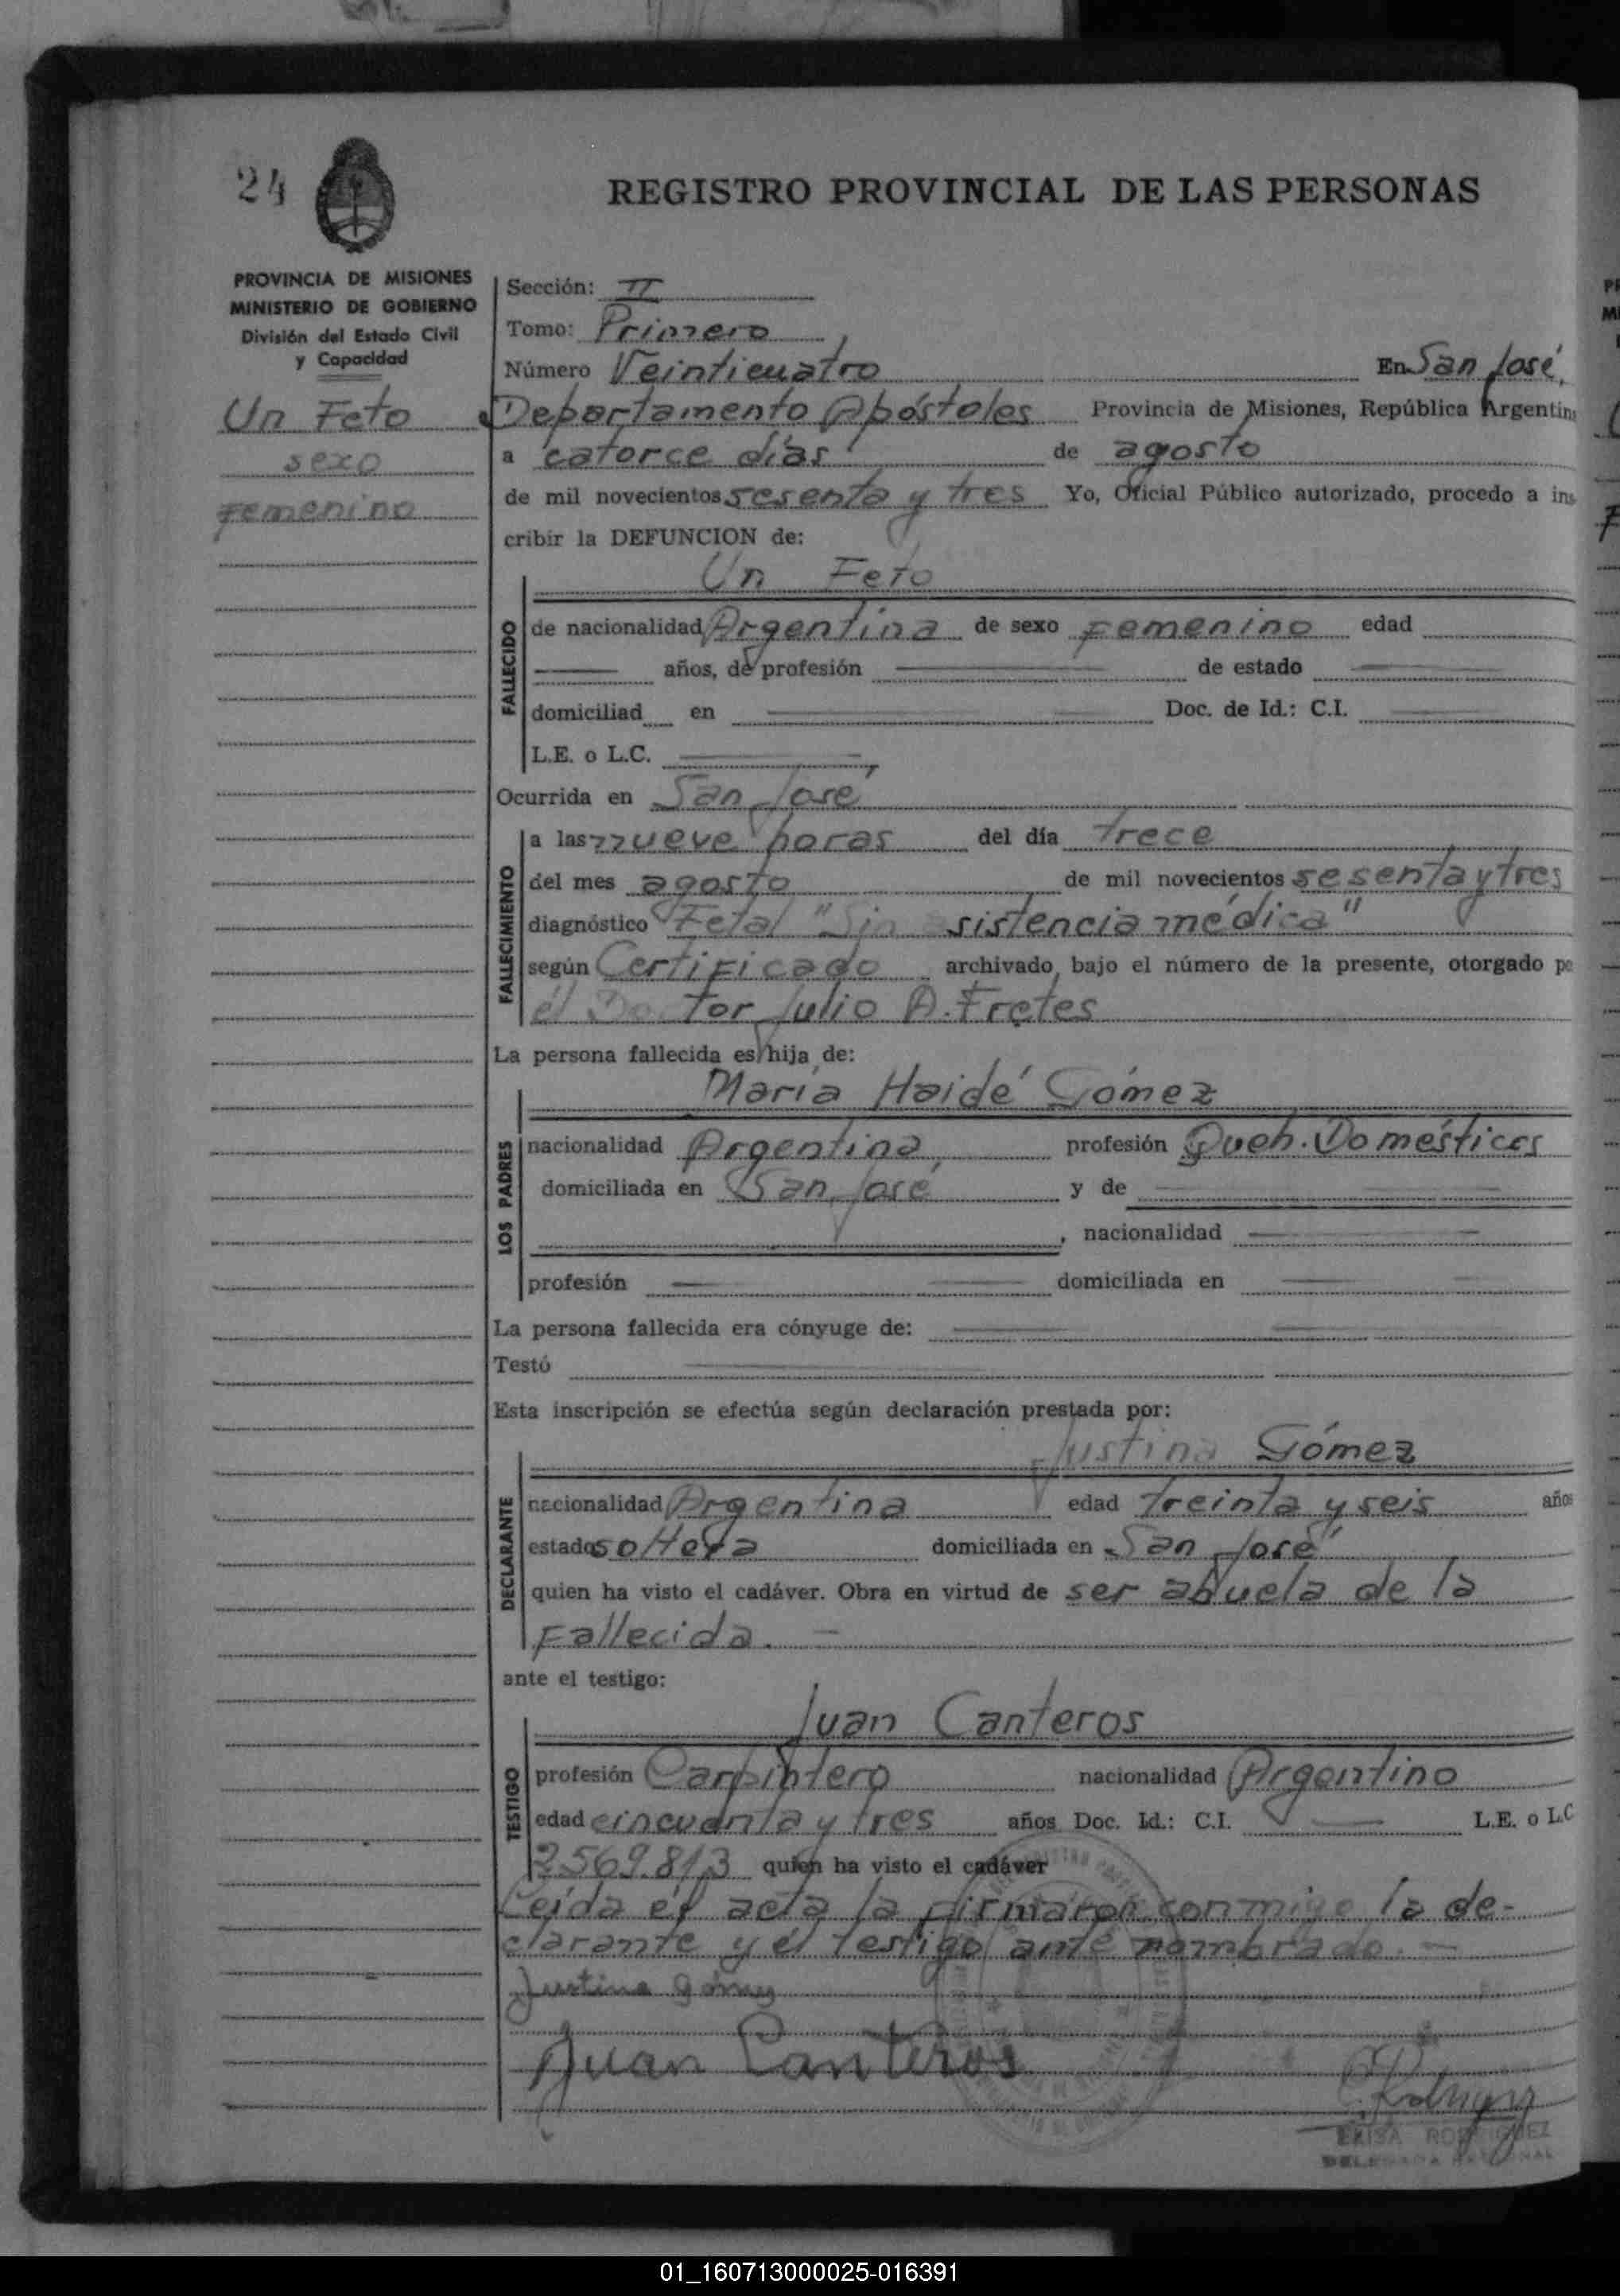 24
REGISTRO PROVINCIAL DE LAS PERSONAS
PROVINCIA DE MISIONES
MINISTERIO DE GOBIERNO
División del Estado Civil
y Capacidad
Un Feto
sexo
Femenino
Sección: II
Tomo: Primero
Número Veinticuatro En San José,
Departamento Apóstoles Provincia de Misiones, República Argentin
a catorce días de agosto
de mil novecientos sesenta y tres Yo, Oficial Público autorizado, procedo a ins
cribir la DEFUNCION de:
Un Feto
FALLECIDO
de nacionalidad Argentina de sexo Femenino edad
años, de profesión de estado
domiciliad en Doc. de Id.: C.I.
L.E. o L.C.
Ocurrida en San José
FALLECIMIENTO
a las nueve horas del día Trece
del mes agosto de mil novecientos sesenta y tres
diagnóstico Fetal "Sin asistencia médica"
según Certificado archivado, bajo el número de la presente, otorgado po
él Doctor Julio A. Fretes
La persona fallecida es hija de:
María Haidé Gómez
LOS PADRES
nacionalidad Argentina, profesión Queh. Domésticos
domiciliada en San José y de
, nacionalidad
profesión domiciliada en
La persona fallecida era cónyuge de:
Testó
Esta inscripción se efectúa según declaración prestada por:
Justina Gómez
DECLARANTE
nacionalidad Argentina edad treinta y seis años
estado soltera domiciliada en San José
quien ha visto el cadáver. Obra en virtud de ser abuela de la
Fallecida. —
ante el testigo:
Juan Canteros
TESTIGO
profesión Carpintero nacionalidad Argentino
edad cincuenta y tres años Doc. Id.: C.I. — L.E. o L.C
2569.813 quien ha visto el cadáver
Leída él acta la firmaron conmigo la de-
clarante y él testigo ante nombrado. —
Justina Gómez
Juan Canteros
ERodriguez
ELISA RODRIGUEZ
DELEGADA
01_160713000025-016391